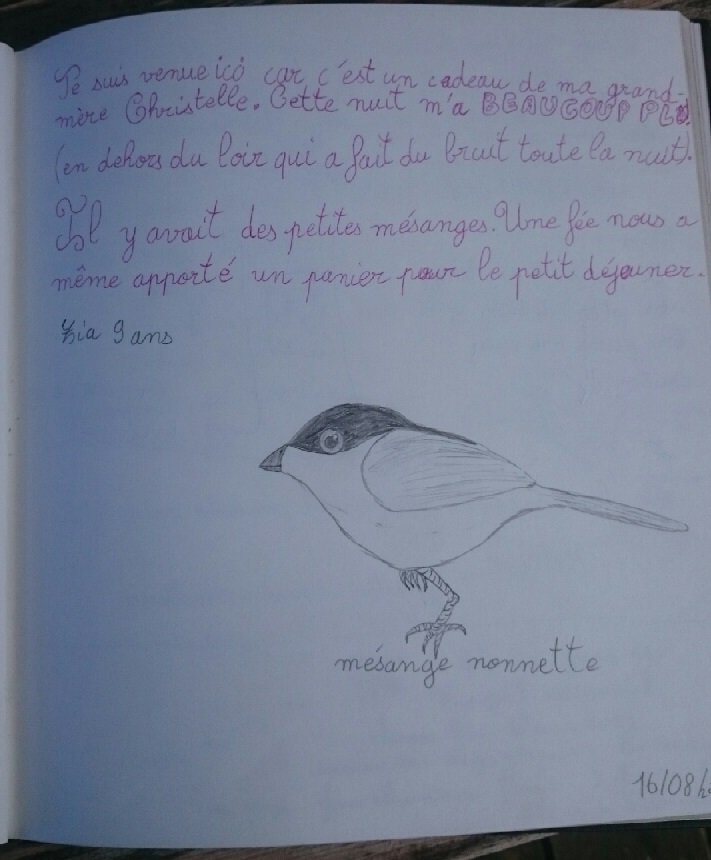 Je suis venue ici car c'est un cadeau de ma grand-
mère Christelle. Cette nuit m'a BEAUCOUP PLU!
(en dehors du loir qui a fait du bruit toute la nuit).
Il y avait des petites mésanges. Une fée nous a
même apporté un panier pour le petit déjeuner.
9 ans
mésange nonnette
16/08/